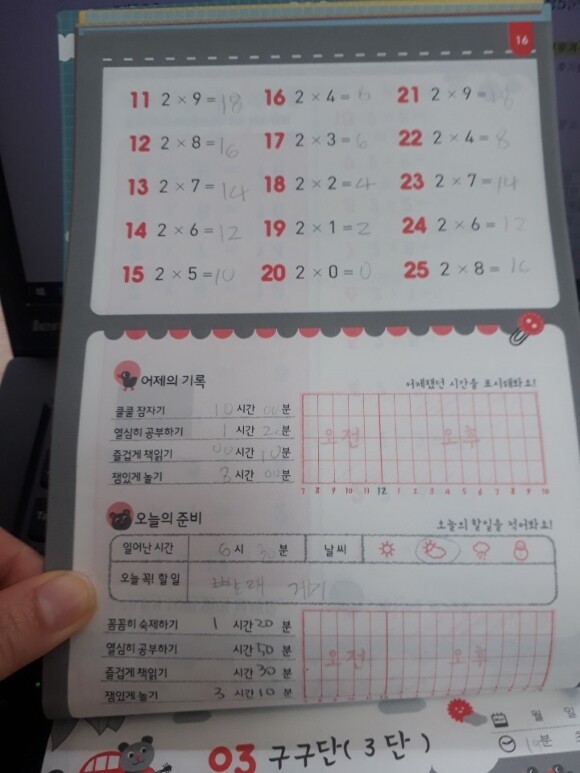 16
11 2 × 9 = 18 16 2 × 4 = 8 21 2 × 9 = 18
12 2 × 8 = 16 17 2 × 3 = 6 22 2 × 4 = 8
13 2 × 7 = 14 18 2 × 2 = 4 23 2 × 7 = 14
14 2 × 6 = 12 19 2 × 1 = 2 24 2 × 6 = 12
15 2 × 5 = 10 20 2 × 0 = 0 25 2 × 8 = 16
어제의 기록
어제했던 시간을 표시해봐요!
쿨쿨 잠자기 10 시간 00 분
열심히 공부하기 1 시간 20 분
즐겁게 책읽기 00 시간 10 분
잼있게 놀기 3 시간 00 분
오전 오후
7 8 9 10 11 12 1 2 3 4 5 6 7 8 9 10
오늘의 준비
오늘의 할일을 적어봐요!
일어난 시간 6 시 30 분 날씨
오늘 꼭! 할 일 빨래 개기
꼼꼼히 숙제하기 1 시간 20 분
열심히 공부하기 시간 50 분
즐겁게 책읽기 시간 30 분
잼있게 놀기 3 시간 10 분
오전 오후
03 구구단( 3 단 )
월 일
분